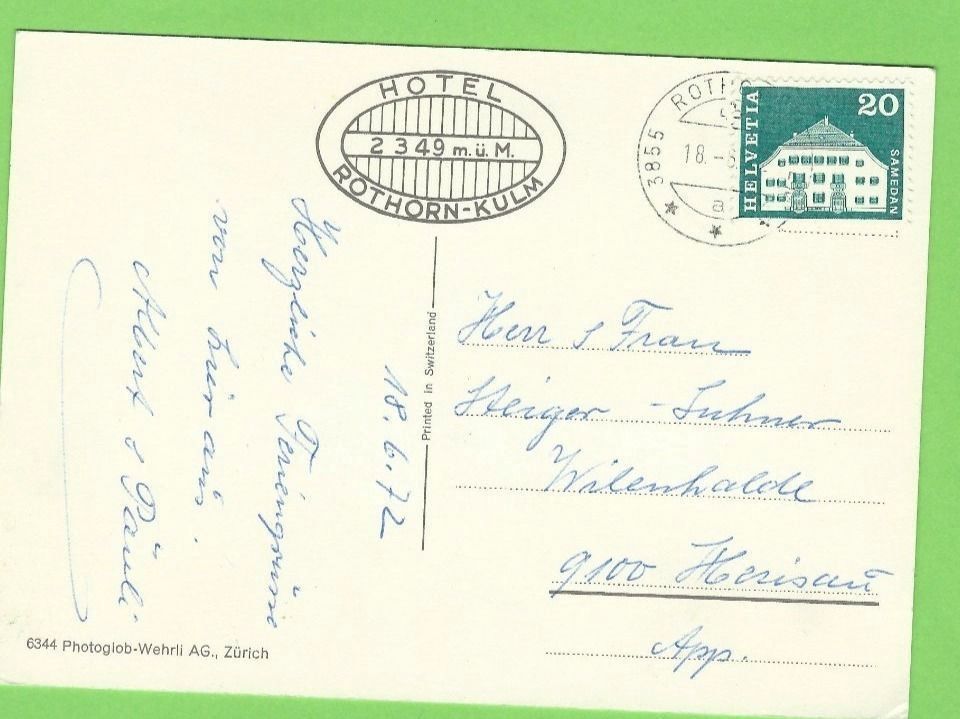 HOTEL
2349 m.ü.M.
ROTHORN-KULM
3855 ROTHO
18. -
a
HELVETIA
20
SAMEDAN
18.6.72
Herzliche Feriengrüsse
von hier aus.
Albert & Päuli.
Printed in Switzerland
Herr & Frau
Steiger - Suhner
Wilenhalde
9100 Herisau
App.
6344 Photoglob-Wehrli AG., Zürich